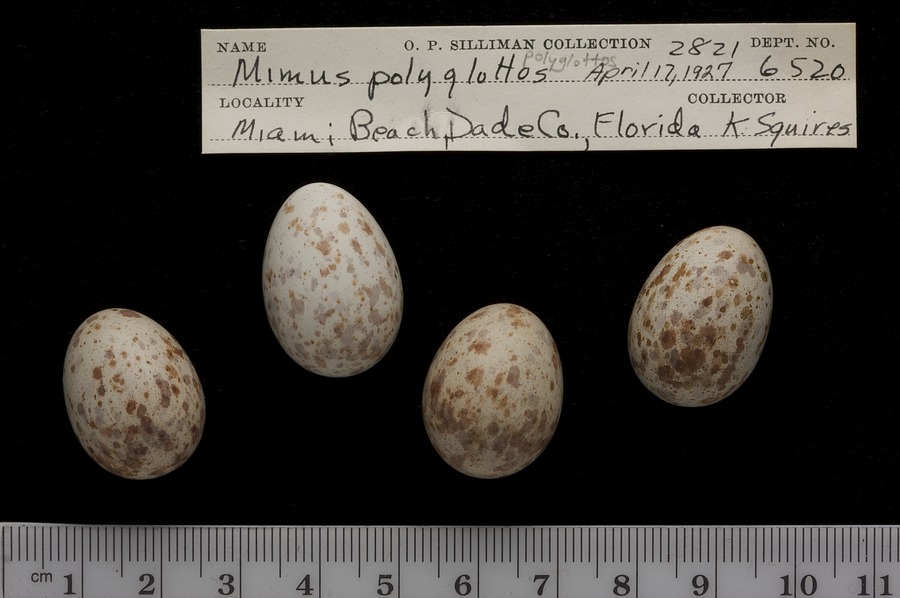 NAME O. P. SILLIMAN COLLECTION 2821 DEPT. NO.
polyglottos
Mimus polyglottos April 17, 1927 6520
LOCALITY COLLECTOR
Miami Beach, Dade Co., Florida K. Squires
cm 1 2 3 4 5 6 7 8 9 10 11